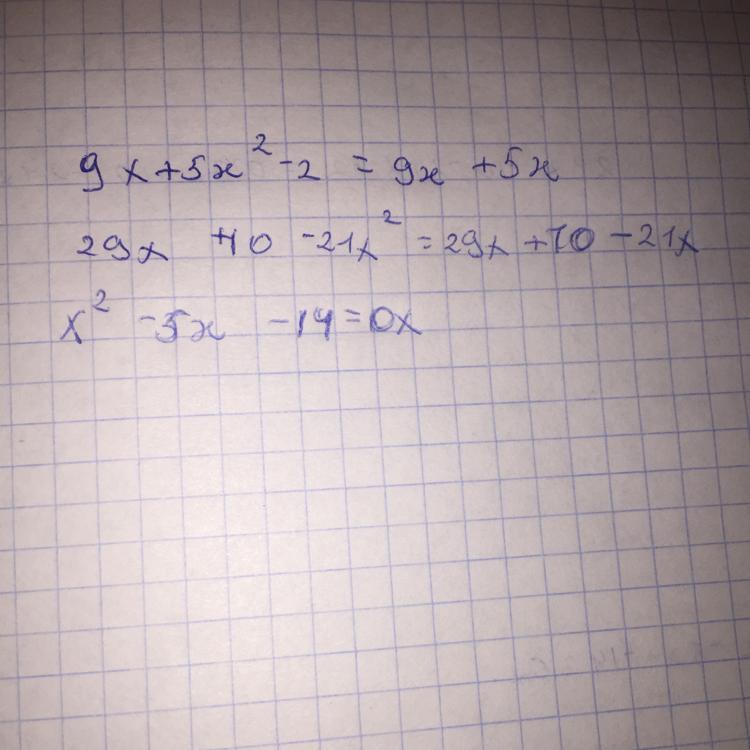 9x+5x²-2 = 9x +5x
29x +10 -21x² = 29x +10 -21x
x² -5x -14=0x